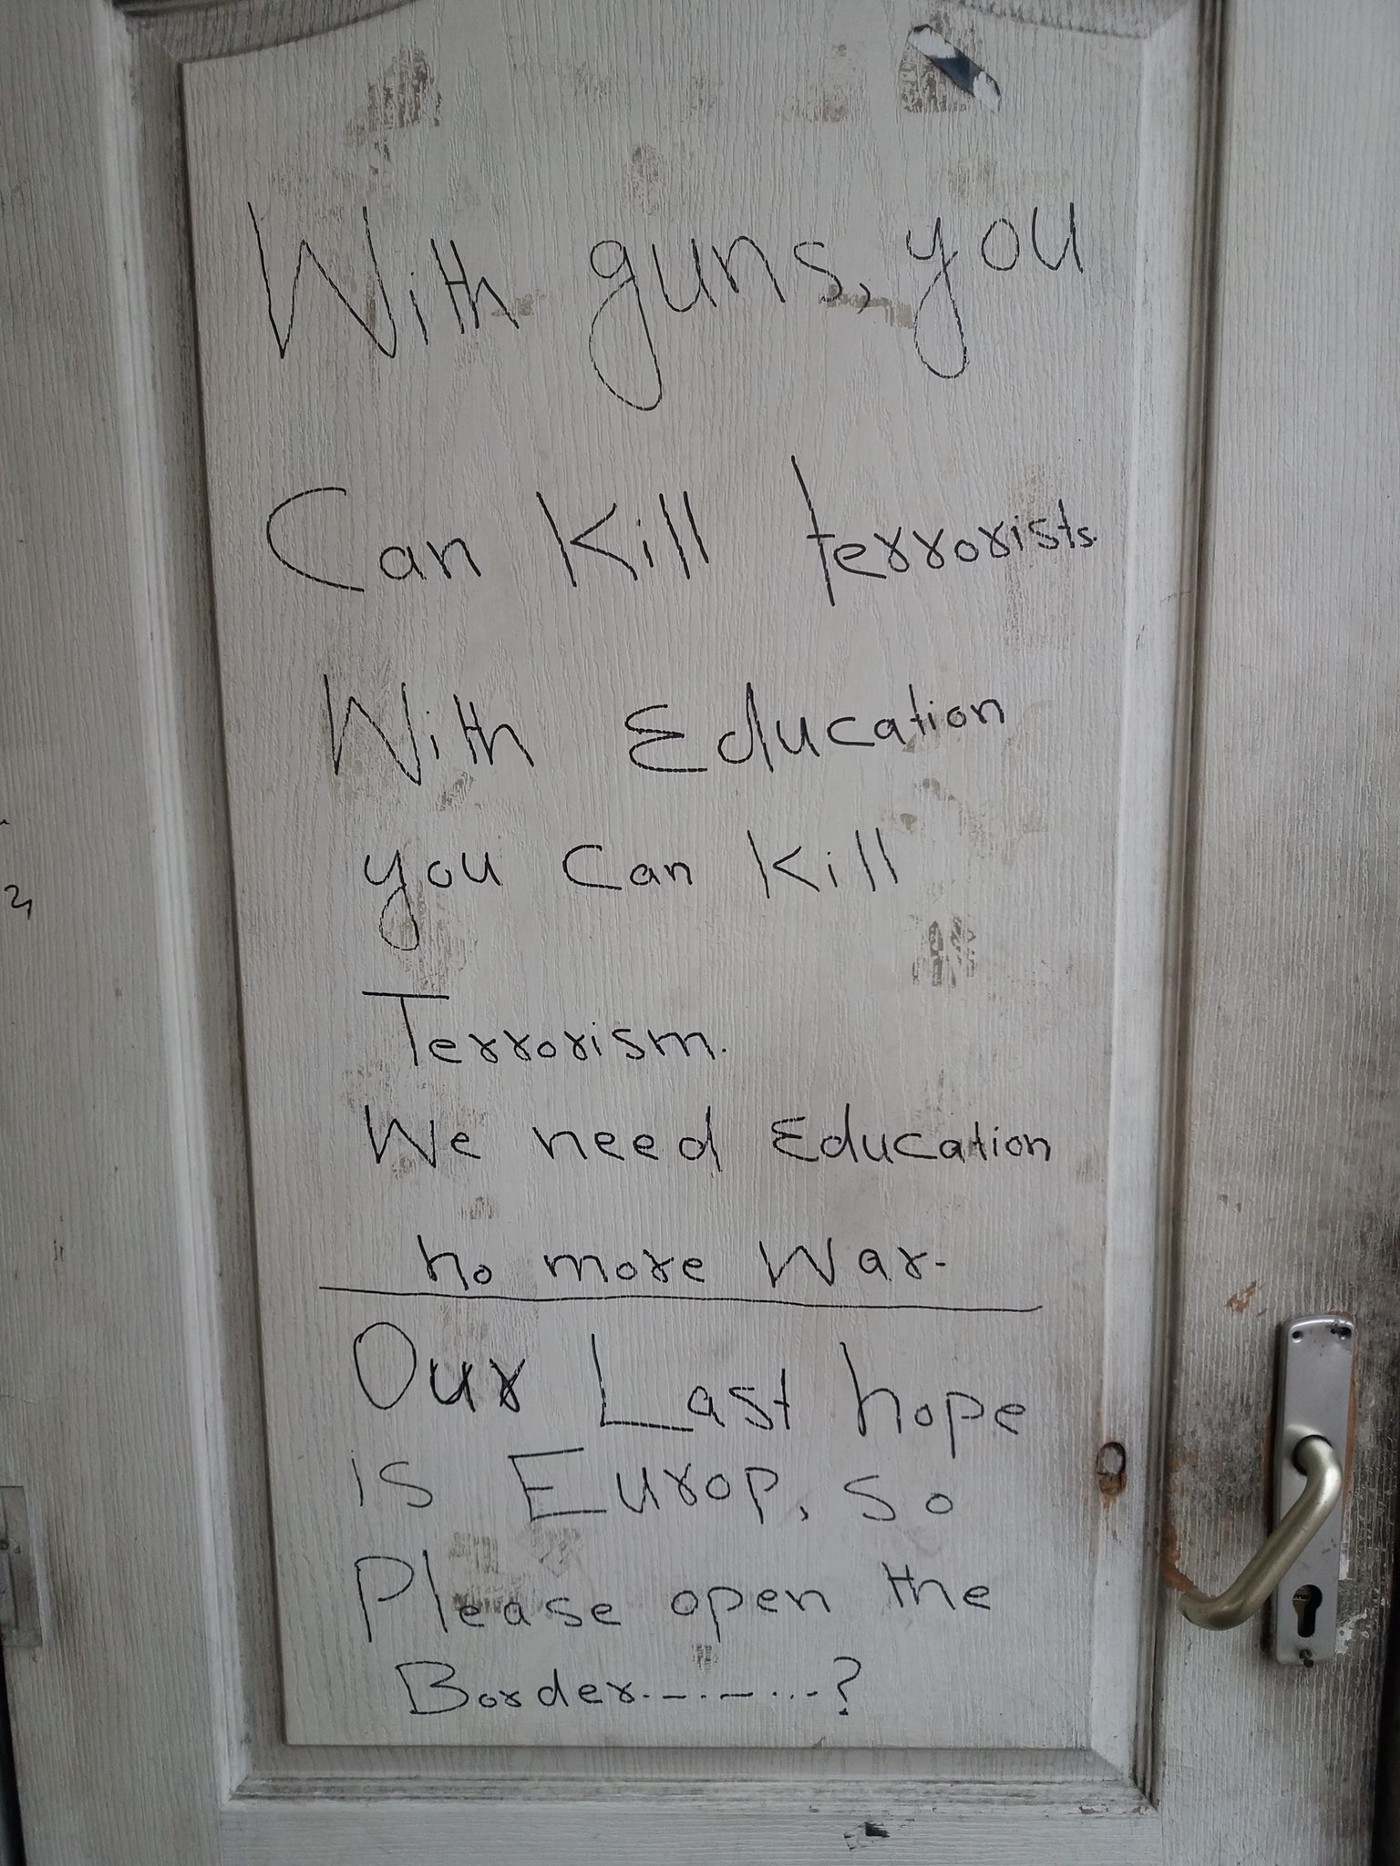 With guns, you
Can Kill terrorists.
With Education
you Can Kill
Terrorism.
We need Education
no more War.
Our Last hope
is Europ, so
Please open the
Border..-.-...-?